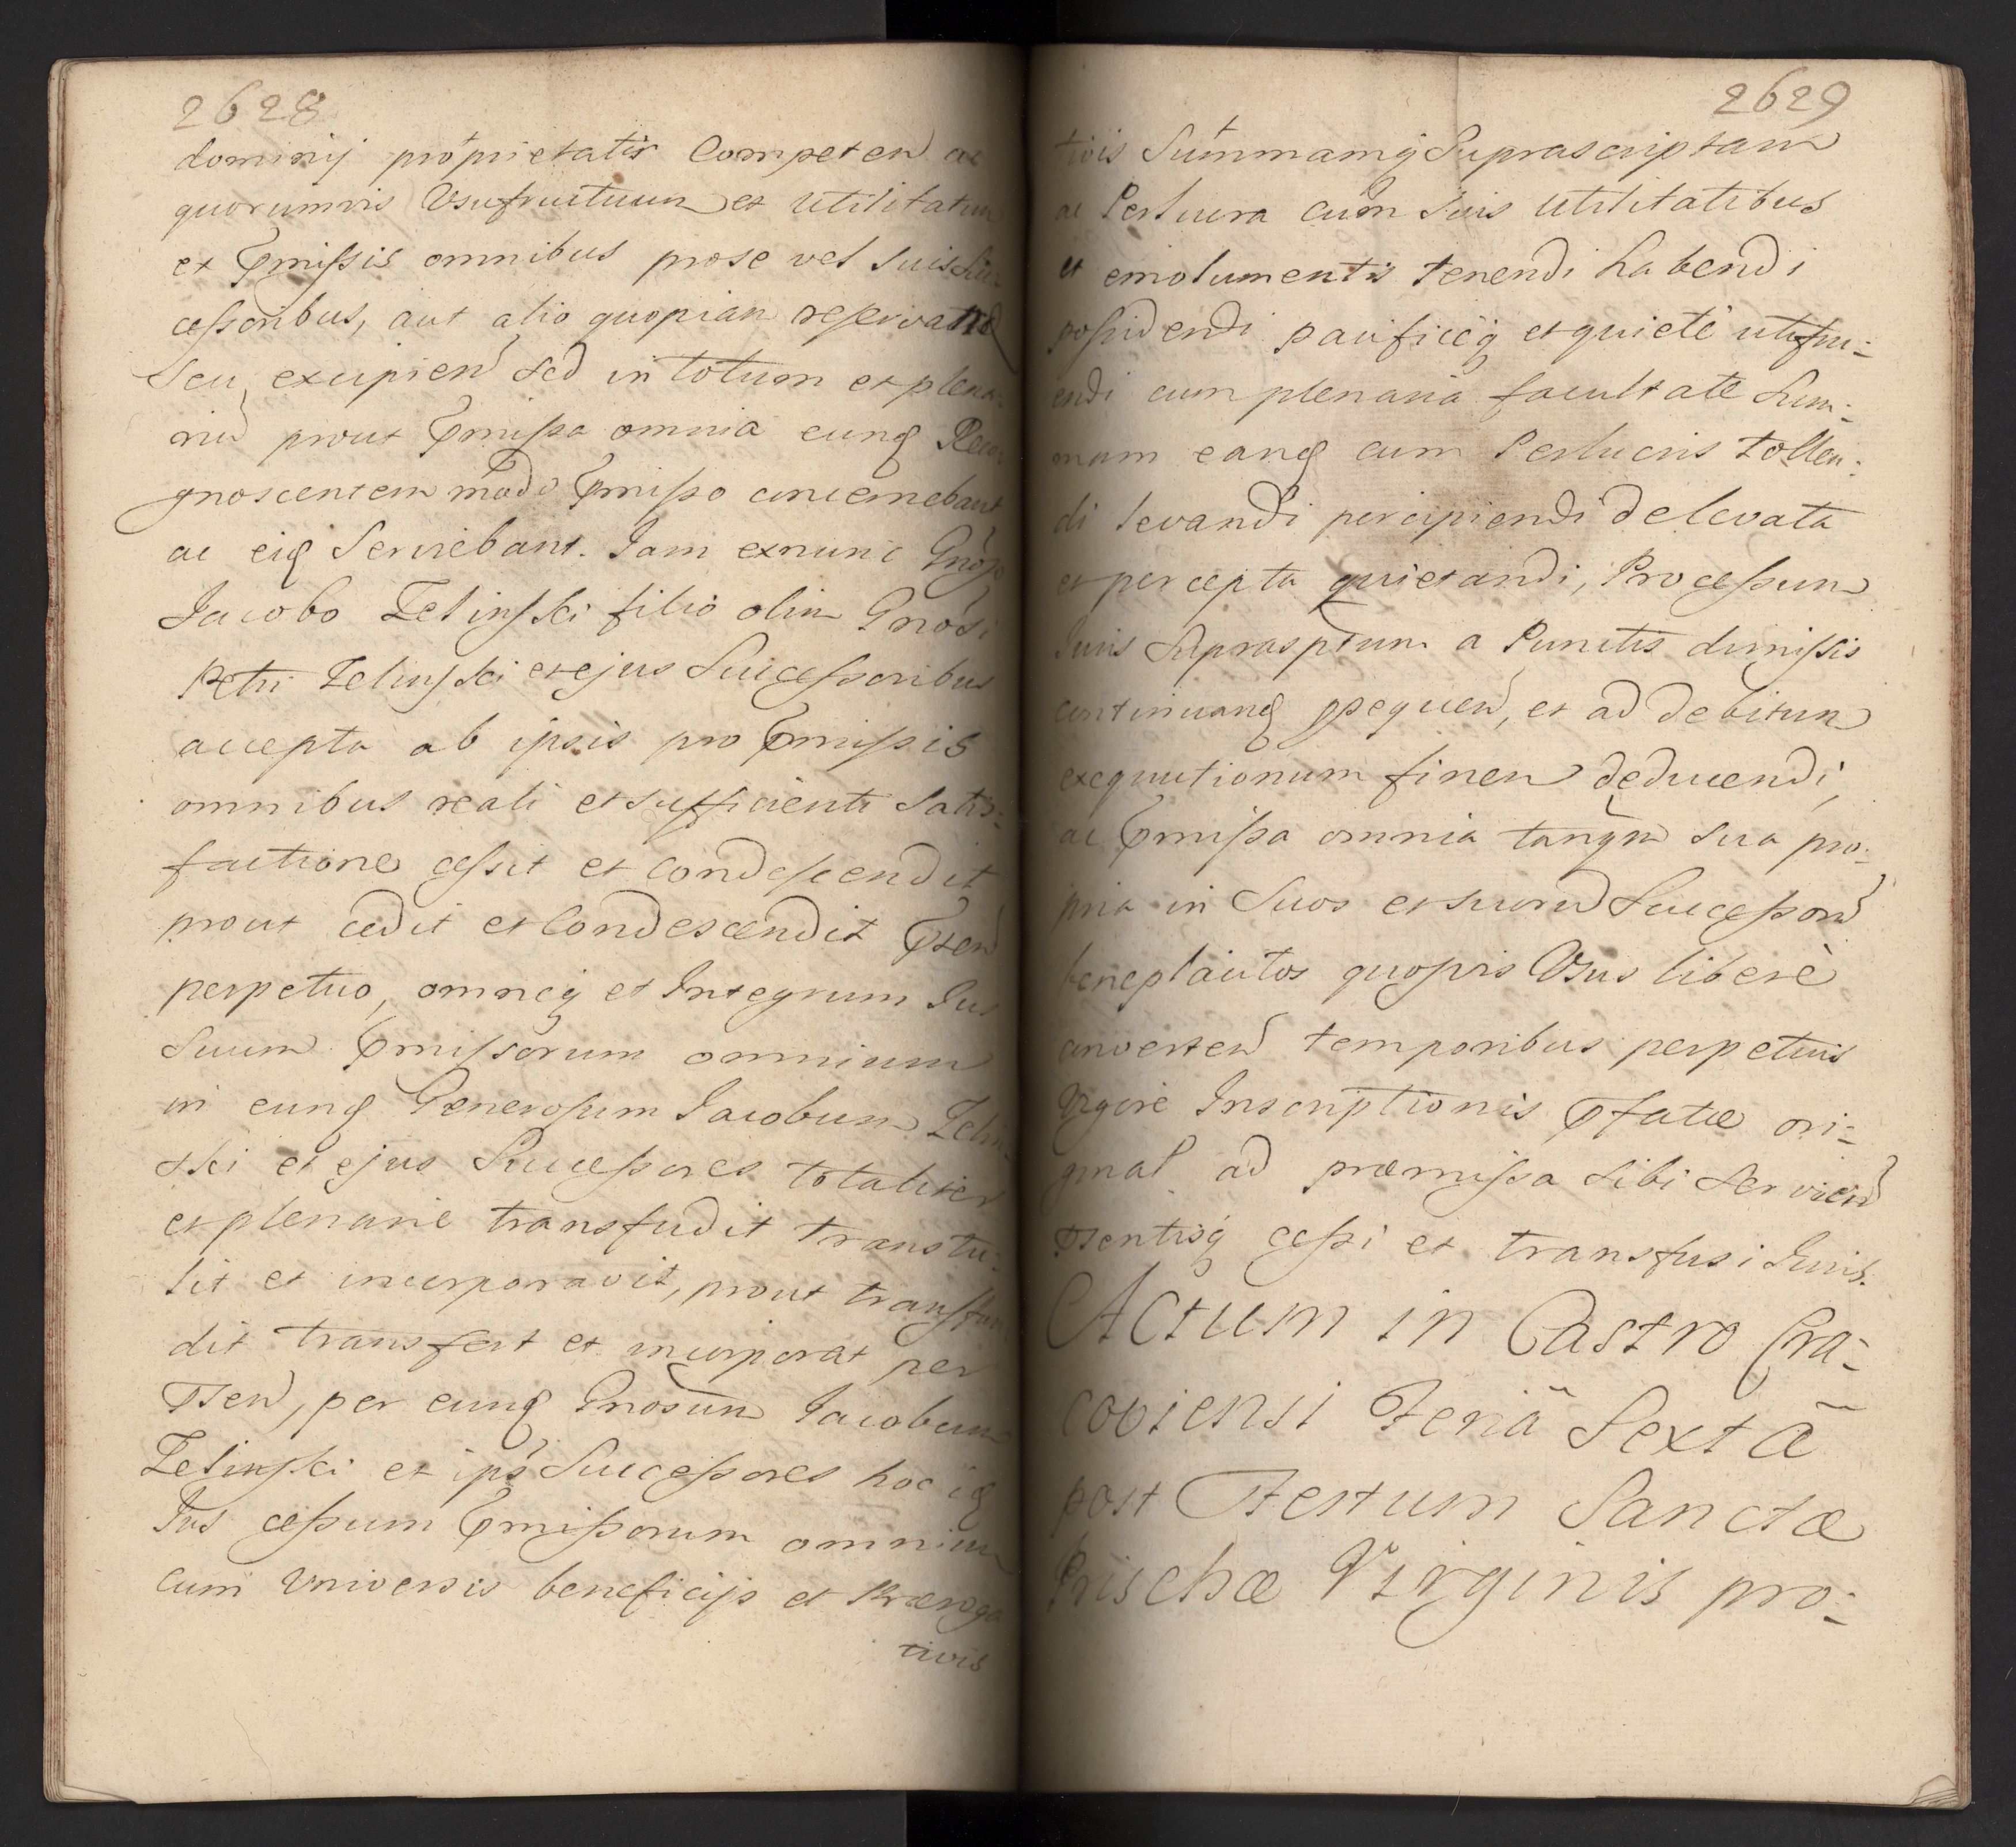 2628
dominij proprietatis Competen ac
quorumvis Usufructuum et utilitatum
ex Pmissis omnibus pro se vel suis Suc
cessoribus, aut alio quopiam reservatne
seu excipien sed in totum et plena:
rie prout Pmissa omnia eunq Reco
gnoscentem modo Pmisso concernebant
ac eiq Serviebant. Iam exnunc Gnoso
Jacobo Zelinski filio olim Gnosi
Petri Zelinski et ejus Successoribus
accepta ab ipsis pro Pmissis
omnibus reali et sufficienti satis:
factione cessit et condescendit
prout cedit et Condescendit Pten
perpetuo, omneq et Integrum Jus
suum Pmissorum omnium
in eunq Generosum Jacobum Zelin
ski et ejus Successores totaliter
et plenarie transfudit transtu:
lit et incorporavit, prout transfun
dit transfert et incorporat per
Psen, per eunq Gnosum Jacobum
Zelinski et ips Successores hoc iq
Jus cessum Pmissorum omnium
cum Universis beneficijs et Praeroga
tivis
2629
tivis Summamq Suprascriptam
ac Perlucra cum suis utilitatibus
et emolumentis tenendi habendi
possidendi pacificeq et quietè utifru:
endi cum plenaria facultate Sum:
mam eanq cum Perlucris tollen:
di levandi percipiendi de levata
et percepta quietandi, Processum
Juris Suprasptum a Punctis dimissis
continuanq psequen, et ad debitum
exequutionum finem deducendi,
ac Pmissa omnia tanqm sua pro:
pria in Suos et suorum Successorum
beneplacitos quosvis Usus liberè
converten temporibus perpetuis
Vigore Inscriptionis Pfatae ori:
ginal ad praemissa sibi servien
Psentisq cessi et transfusi Juris.
Actum in Castro Cra:
coviensi Feriâ Sextâ
post Festum Sanctae
Prischae Virginis pro: